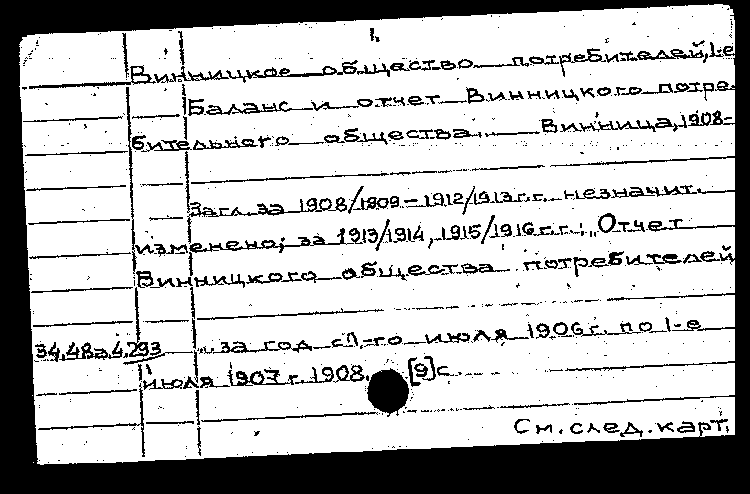 1.
Винницкое общество потребителей, 1-е
Баланс и отчет Винницкого потре-
бительного общества... Винница, 1908-
Загл. за 1908/1909-1912/1913 г.г. незначит.
изменено; за 1913/1914, 1915/1916 г.г.: "Отчет
Винницкого общества потребителей
34.48а.4.293 ... за год с 1-го июля 1906 г. по 1-е
июля 1907 г. 1908. [9] с.
См. след. карт.